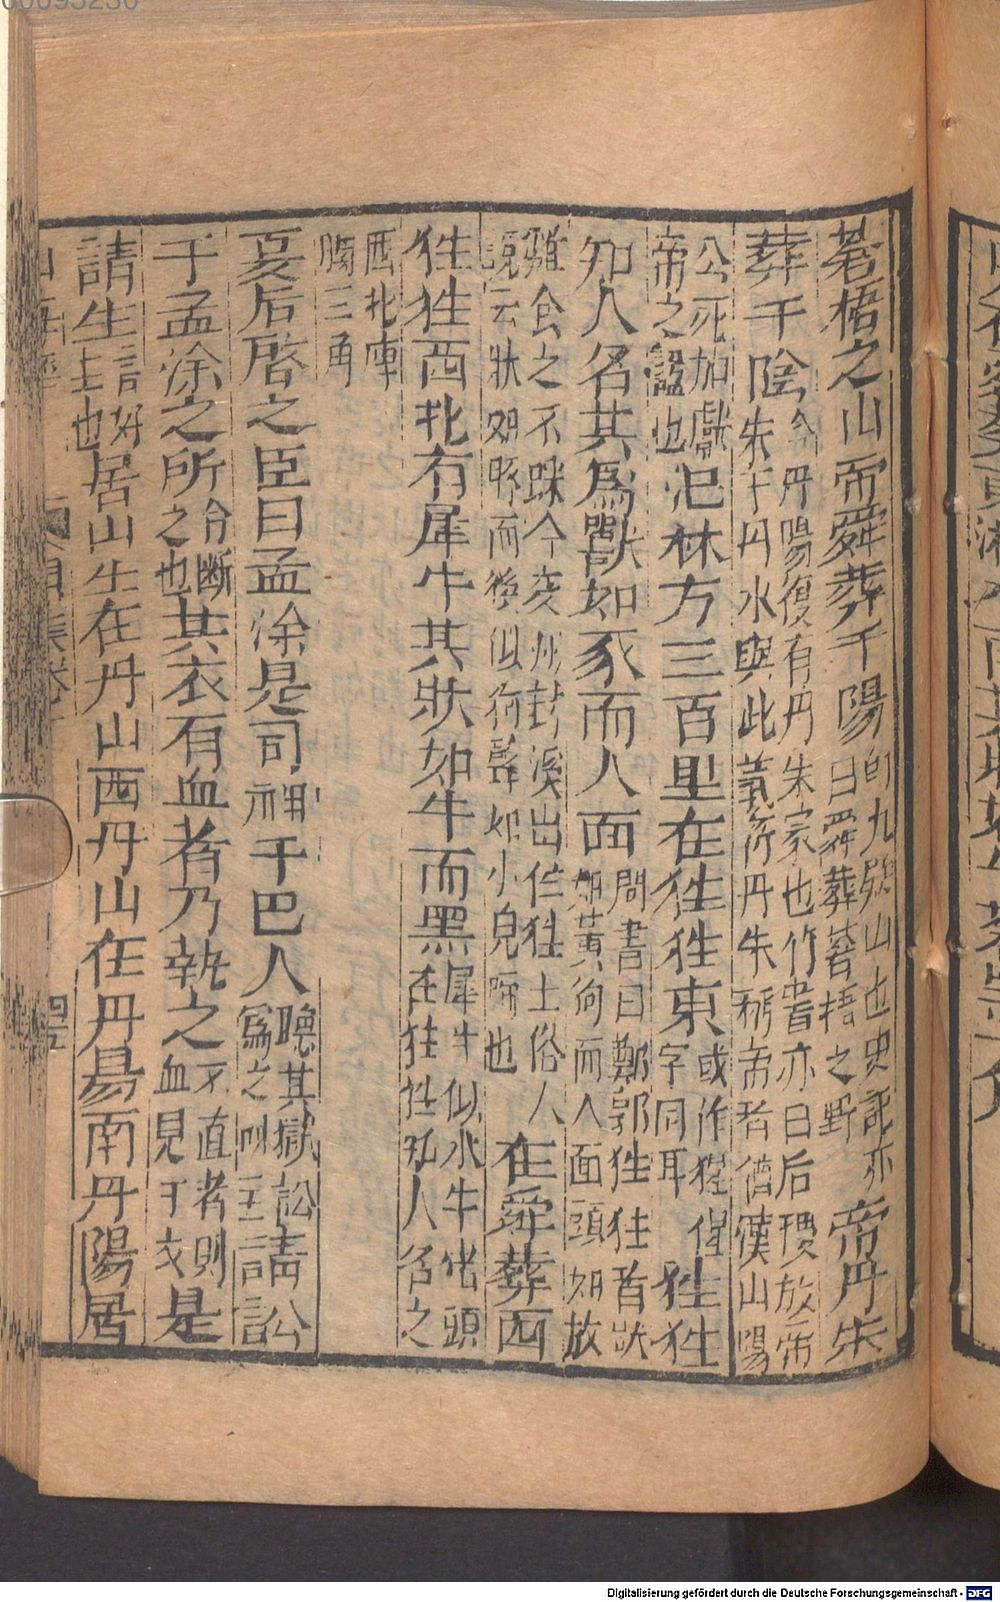 蒼梧之山而舜葬于陽即九疑山也史記亦曰舜葬蒼梧之野帝丹朱
葬于陰今丹陽復有丹朱冢也竹書亦曰后稷放帝朱于丹水與此義符丹朱稱帝者猶漢山陽
公死加獻帝之諡也氾林方三百里在狌狌東或作猩猩字同耳狌狌
知人名其爲獸如豕而人面周書曰鄭郭狌狌者狀如黃狗而人面頭如放
雞食之不眯今交州封溪出狌狌土俗人說云狀如豚而後似狗聲如小兒啼也在舜葬西
狌狌西北有犀牛其狀如牛而黑犀牛似水牛猪頭在狌狌知人名之
西北庳脚三角
夏后啓之臣曰孟涂是司神于巴人聽其獄訟爲之神主請訟
于孟涂之所令斷之也其衣有血者乃執之不直者則血見于衣是
請生言好生也居山生在丹山西丹山在丹昜南丹陽居
山海經
四五
Digitalisierung gefördert durch die Deutsche Forschungsgemeinschaft - DFG